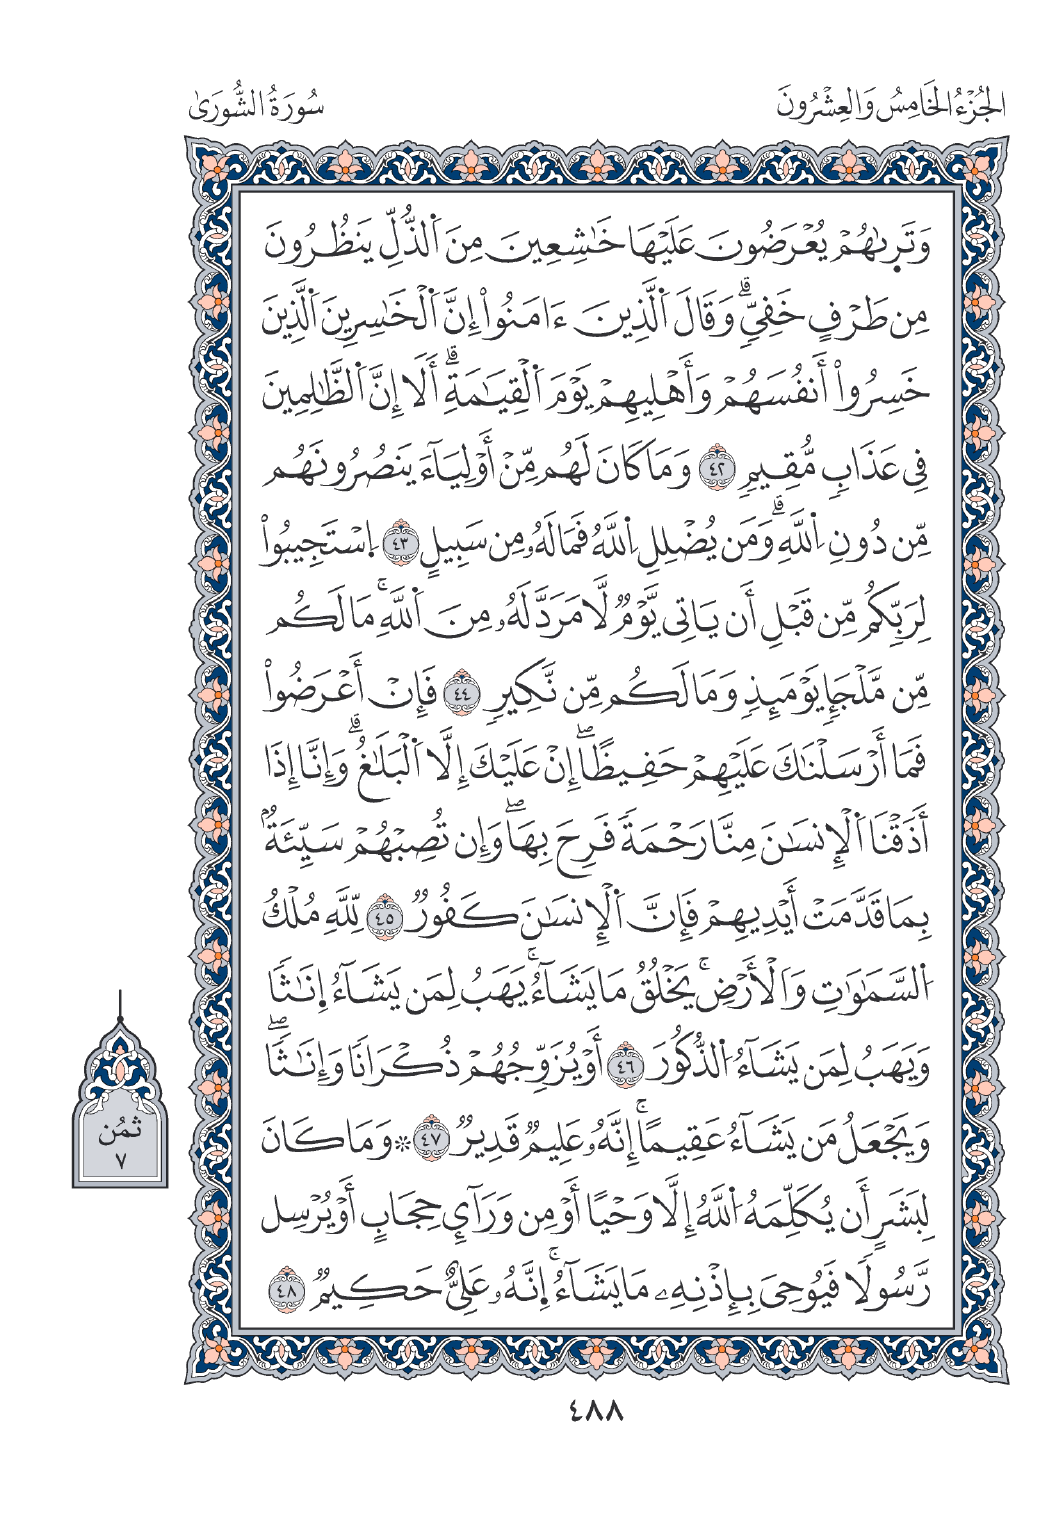 الجُزْءُ الخَامِسُ وَالعِشْرُونَ
سُورَةُ الشُّورَىٰ
وَتَر۪ىٰهُمْ يُعْرَضُونَ عَلَيْهَا خَٰشِعِينَ مِنَ اَ۬لذُّلِّ يَنظُرُونَ
مِن طَرْفٍ خَفِيّٖۗ وَقَالَ اَ۬لَّذِينَ ءَامَنُوٓاْ إِنَّ اَ۬لْخَٰسِرِينَ اَ۬لَّذِينَ
خَسِرُوٓاْ أَنفُسَهُمْ وَأَهْلِيهِمْ يَوْمَ اَ۬لْقِيَٰمَةِۗ أَلَآ إِنَّ اَ۬لظَّٰلِمِينَ
فِي عَذَابٖ مُّقِيمٖ ٤٢ وَمَا كَانَ لَهُم مِّنْ أَوْلِيَآءَ يَنصُرُونَهُم
مِّن دُونِ اِ۬للَّهِۗ وَمَن يُضْلِلِ اِ۬للَّهُ فَمَا لَهُۥ مِن سَبِيلٍ ٤٣ اِ۪سْتَجِيبُواْ
لِرَبِّكُم مِّن قَبْلِ أَن يَاتِيَ يَوْمٞ لَّا مَرَدَّ لَهُۥ مِنَ اَ۬للَّهِۚ مَا لَكُم
مِّن مَّلْجَإٖ يَوْمَئِذٖ وَمَا لَكُم مِّن نَّكِيرٖ ٤٤ فَإِنْ أَعْرَضُواْ
فَمَآ أَرْسَلْنَٰكَ عَلَيْهِمْ حَفِيظًاۖ إِنْ عَلَيْكَ إِلَّا اَ۬لْبَلَٰغُۗ وَإِنَّآ إِذَآ
أَذَقْنَا اَ۬لْإِنسَٰنَ مِنَّا رَحْمَةٗ فَرِحَ بِهَاۖ وَإِن تُصِبْهُمْ سَيِّئَةُۢ
بِمَا قَدَّمَتْ أَيْدِيهِمْ فَإِنَّ اَ۬لْإِنسَٰنَ كَفُورٞ ٤٥ لِّلَّهِ مُلْكُ
اُ۬لسَّمَٰوَٰتِ وَالْأَرْضِۚ يَخْلُقُ مَا يَشَآءُۚ يَهَبُ لِمَن يَشَآءُ اِ۪نَٰثٗا
وَيَهَبُ لِمَن يَشَآءُ اُ۬لذُّكُورَ ٤٦ أَوْ يُزَوِّجُهُمْ ذُكْرَانٗا وَإِنَٰثٗاۖ
وَيَجْعَلُ مَن يَشَآءُ عَقِيمًاۚ إِنَّهُۥ عَلِيمٞ قَدِيرٞ ٤٧ ۞ وَمَا كَانَ
لِبَشَرٍ أَن يُكَلِّمَهُ اُ۬للَّهُ إِلَّا وَحْيًا أَوْ مِن وَرَآءِےْ حِجَابٍ أَوْ يُرْسِل
رَّسُولٗا فَيُوحِيَ بِإِذْنِهِۦ مَا يَشَآءُۚ اِ۪نَّهُۥ عَلِيٌّ حَكِيمٞ ٤٨
ثُمُن
٧
٤٨٨